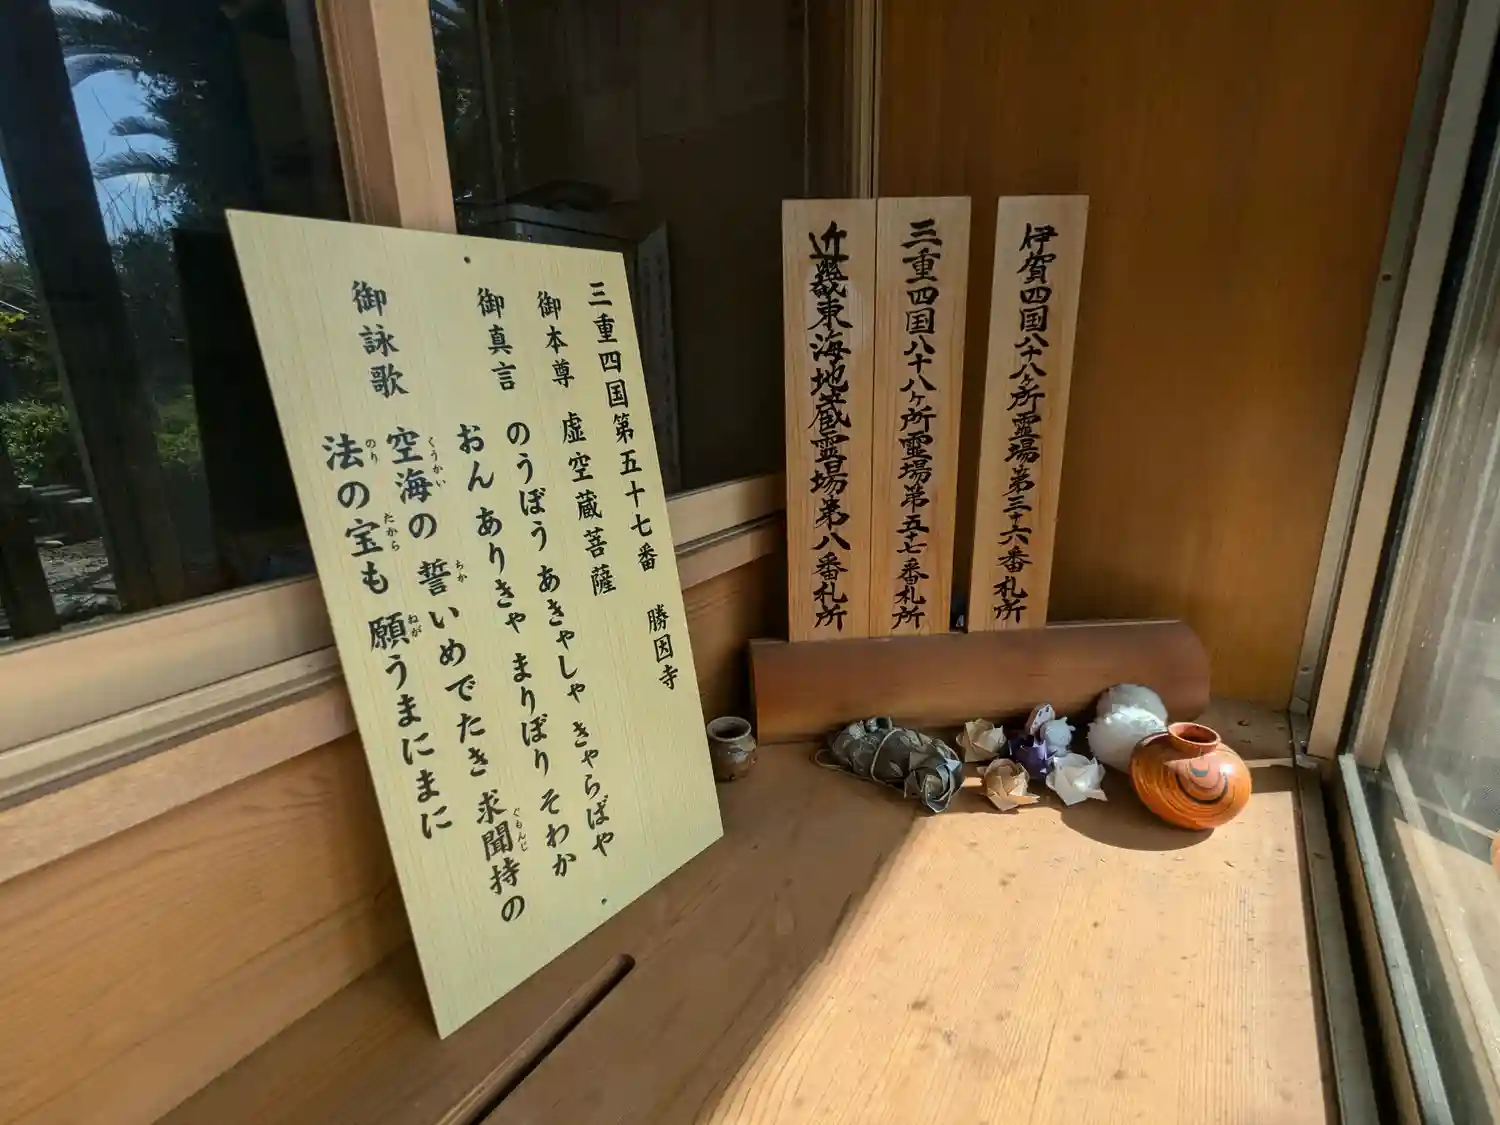 三重四国第五十七番 勝因寺
御本尊 虚空蔵菩薩
御真言 のうぼう あきゃしゃ きゃらばや
おん ありきゃ まりぼり そわか
御詠歌 空海の 誓いめでたき 求聞持の
くうかい ちか ぐもんじ
法の宝も 願うまにまに
のり たから ねが
近畿東海地蔵霊場第八番札所
三重四国八十八ヶ所霊場第五十七番札所
伊賀四国八十八ヶ所霊場第三十六番札所